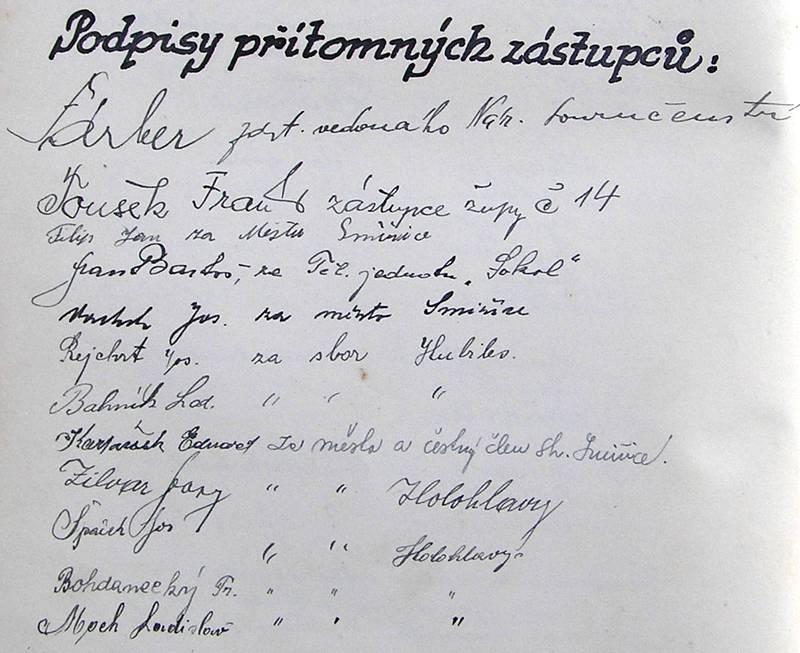 Podpisy přítomných zástupců:
Färber zást. vedoucího Nár. souručenství
Toušek Frant zástupce župy č 14
Filip Jan za Město Smiřice
Jran Bartoš, za Těl. jednotu „Sokol“
Jos. za město Smiřice
Rejchrt Jos. za sbor
Bahník Lad. " " "
Eduard za město a čestný člen sb. Smiřice.
Zilvar Josef " " Holohlavy
Špaček Jos
" " Holohlavy
Bohdanecký Fr. " " "
Moch Ladislav " " "